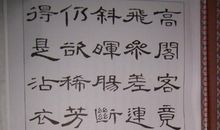 高閣客竟
飛參差連
斜暉腸斷
仍欲稀芳
得是沾衣